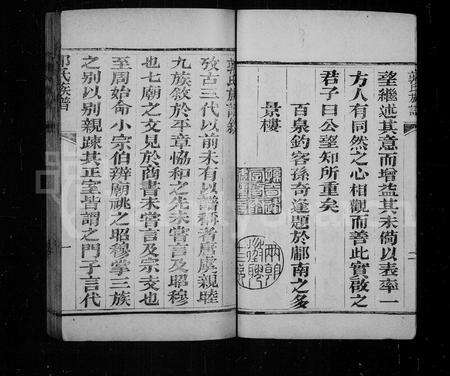 望繼述其意而增益其未備以表率一
方人有同然之心相觀而善此實啟之多
君子曰公望知所重矣
百泉釣客孫奇逢題於鄘南之多
景樓
攷古三代以前未有以譜稱者虞親睦
九族敘於平章協和之先未嘗言及昭穆
也七廟之文見於商書未嘗言及宗支也
至周始侖小宗伯辨廟祧之昭穆掌三族
之别以别親疎其正室皆謂之門子言代
郭氏族譜
一